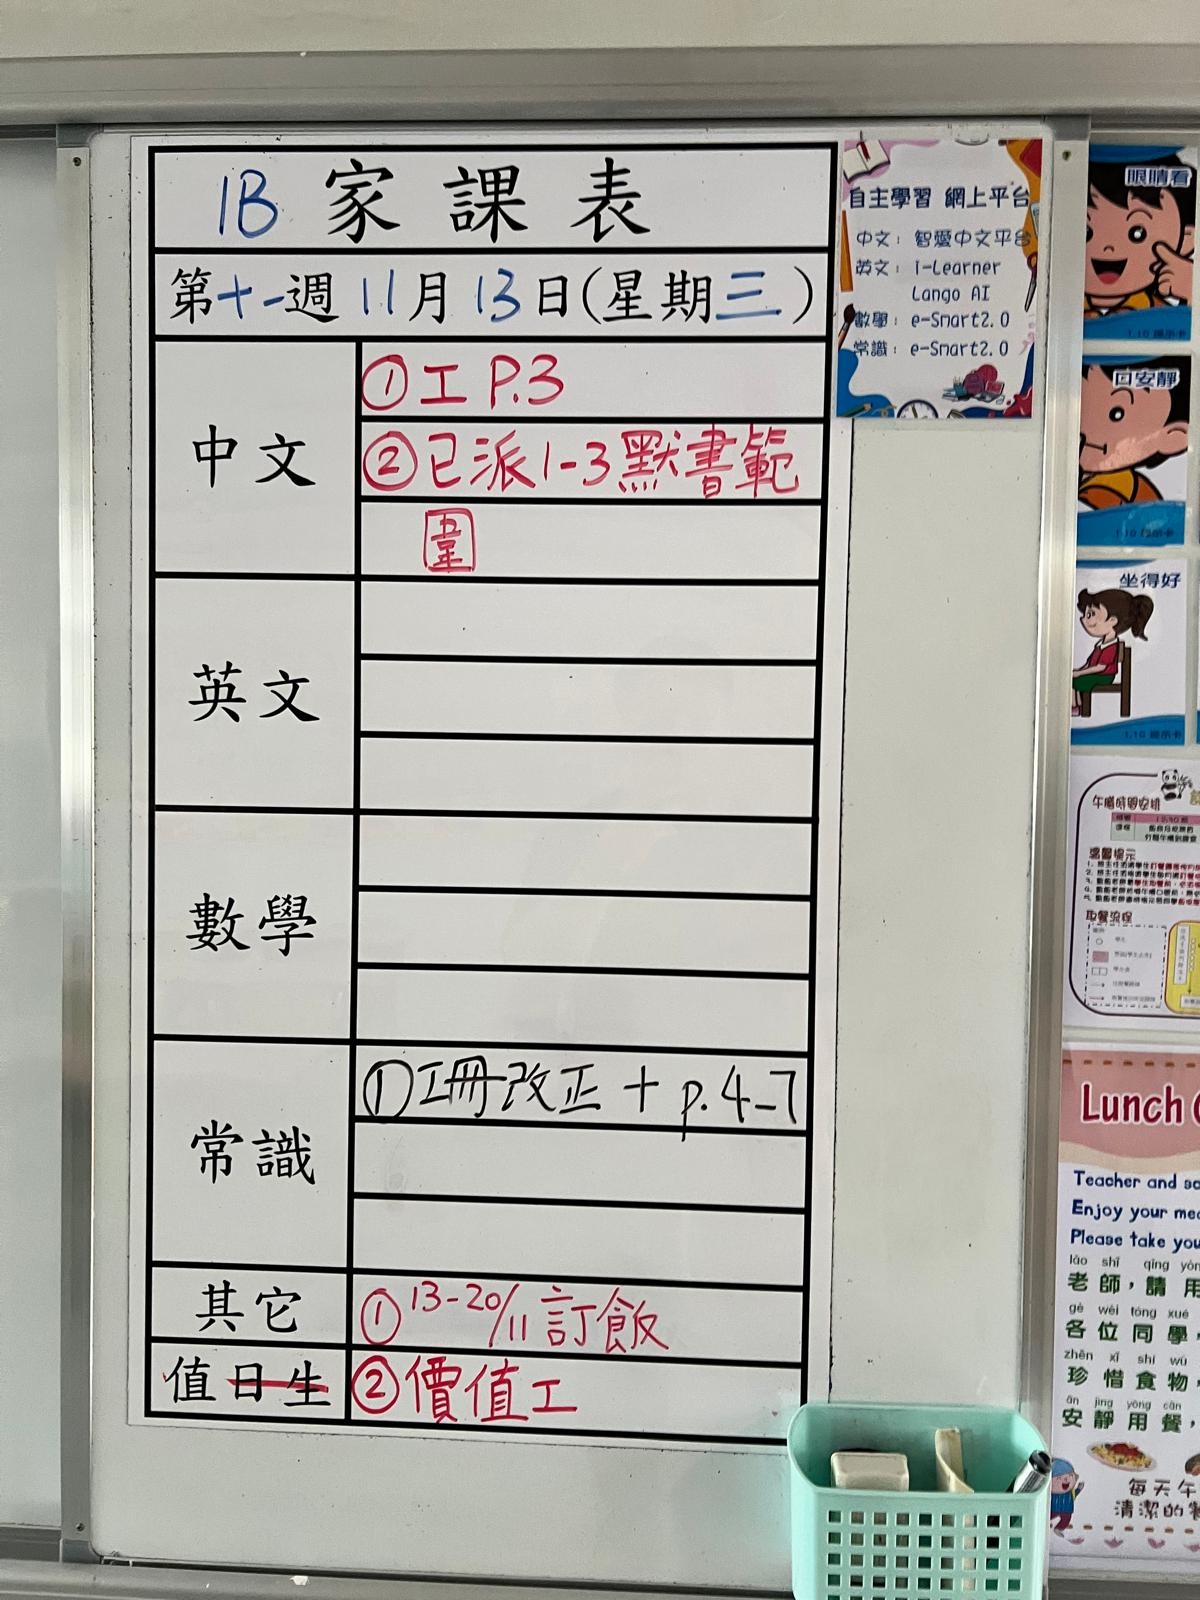 1B 家課表
第十一週 11月 13日(星期三)
中文
①工 P.3
②已派1-3默書範
圍
英文
數學
常識
①工冊改正 + p.4-7
其它
①13-20/11 訂飯
值日生
②價值工
自主學習 網上平台
中文：智愛中文平台
英文：i-Learner
Lango AI
數學：e-Smart2.0
常識：e-Smart2.0
眼睛看
1.10 提示卡
口安靜
1.10 提示卡
坐得好
1.10 提示卡
午膳時間安排
溫馨提示
取餐流程
Lunch
Teacher and
Enjoy your
Please take
lǎo shī qǐng
老師，請用
gè wèi tóng xué
各位同學，
zhēn xī shí wù
珍惜食物，
ān jìng yòng cān
安靜用餐，
每天午
清潔的